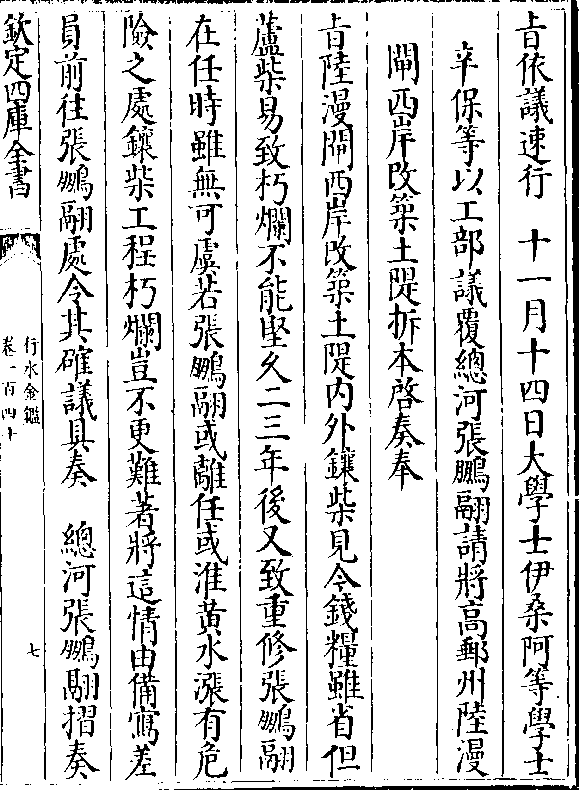 㫖依議速行　十一月十四日大學士伊桑阿等學士
辛保等以工部議覆總河張鵬翮請將高郵州陸漫
閘西岸改築土隄折本啓奏奉
㫖陸漫閘西岸改築土隄内外鑲柴見今錢糧雖省但
蘆柴易致朽爛不能堅久二三年後又致重修張鵬翮
在任時雖無可虞若張鵬翮或離任或淮黄水漲有危
險之處鑲柴工程朽爛豈不更難著將這情由備寫差
員前往張鵬翮處令其確議具奏　總河張鵬翮摺奏
欽定四庫全書
行水金鑑
卷一百四十
七